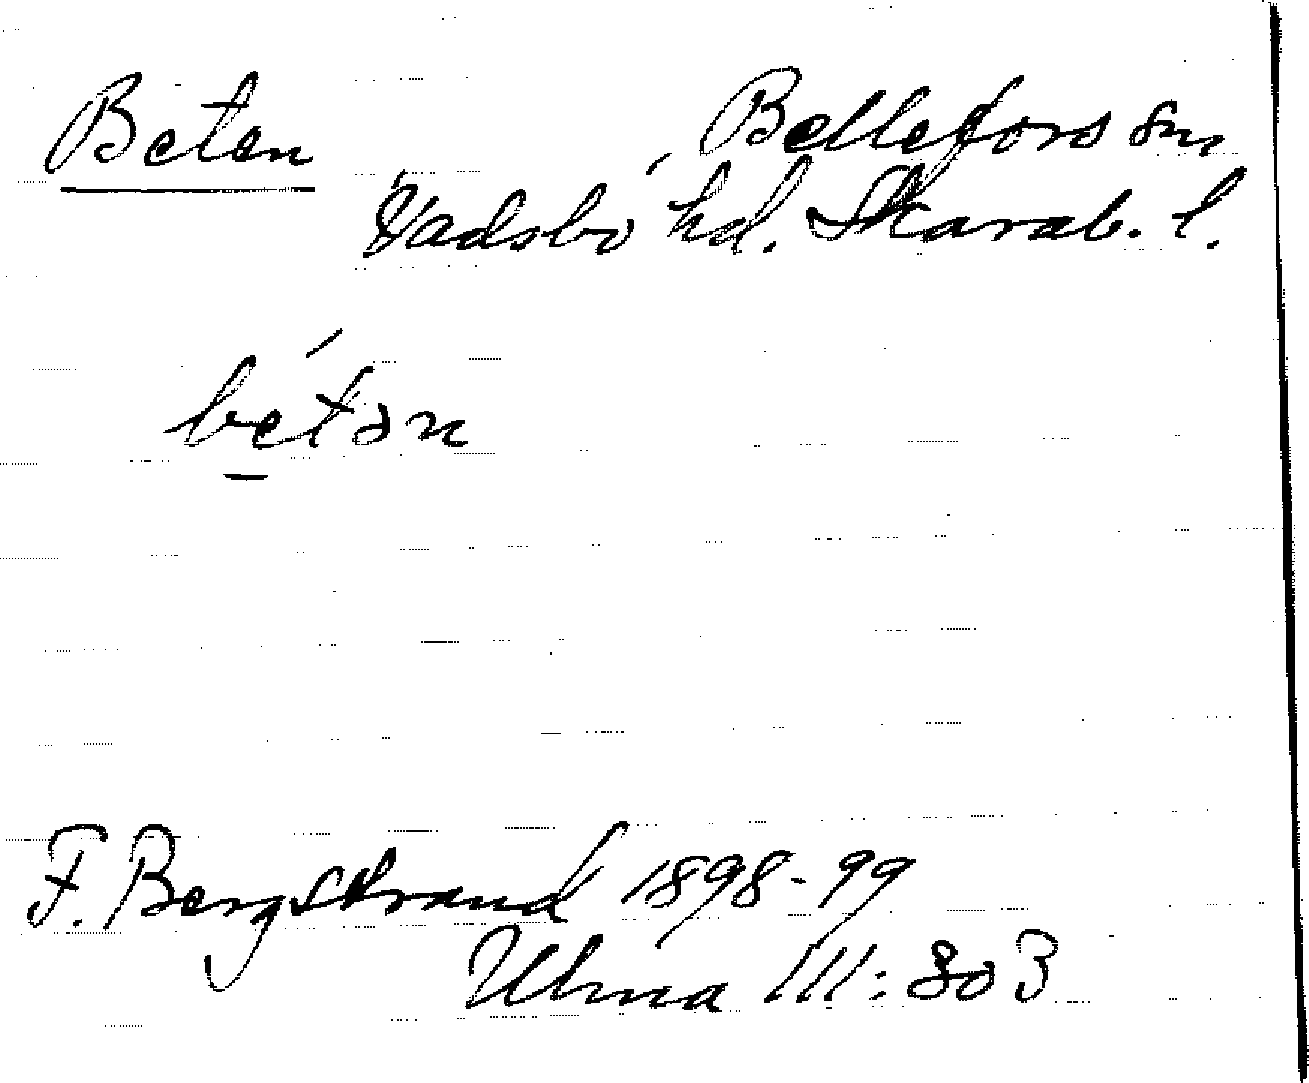 Beten Bellefors sn,
Vadsbo hd. Skarab. l.
be̱t́ən
F. Bergstrand 1898-99
Ulma III: 303